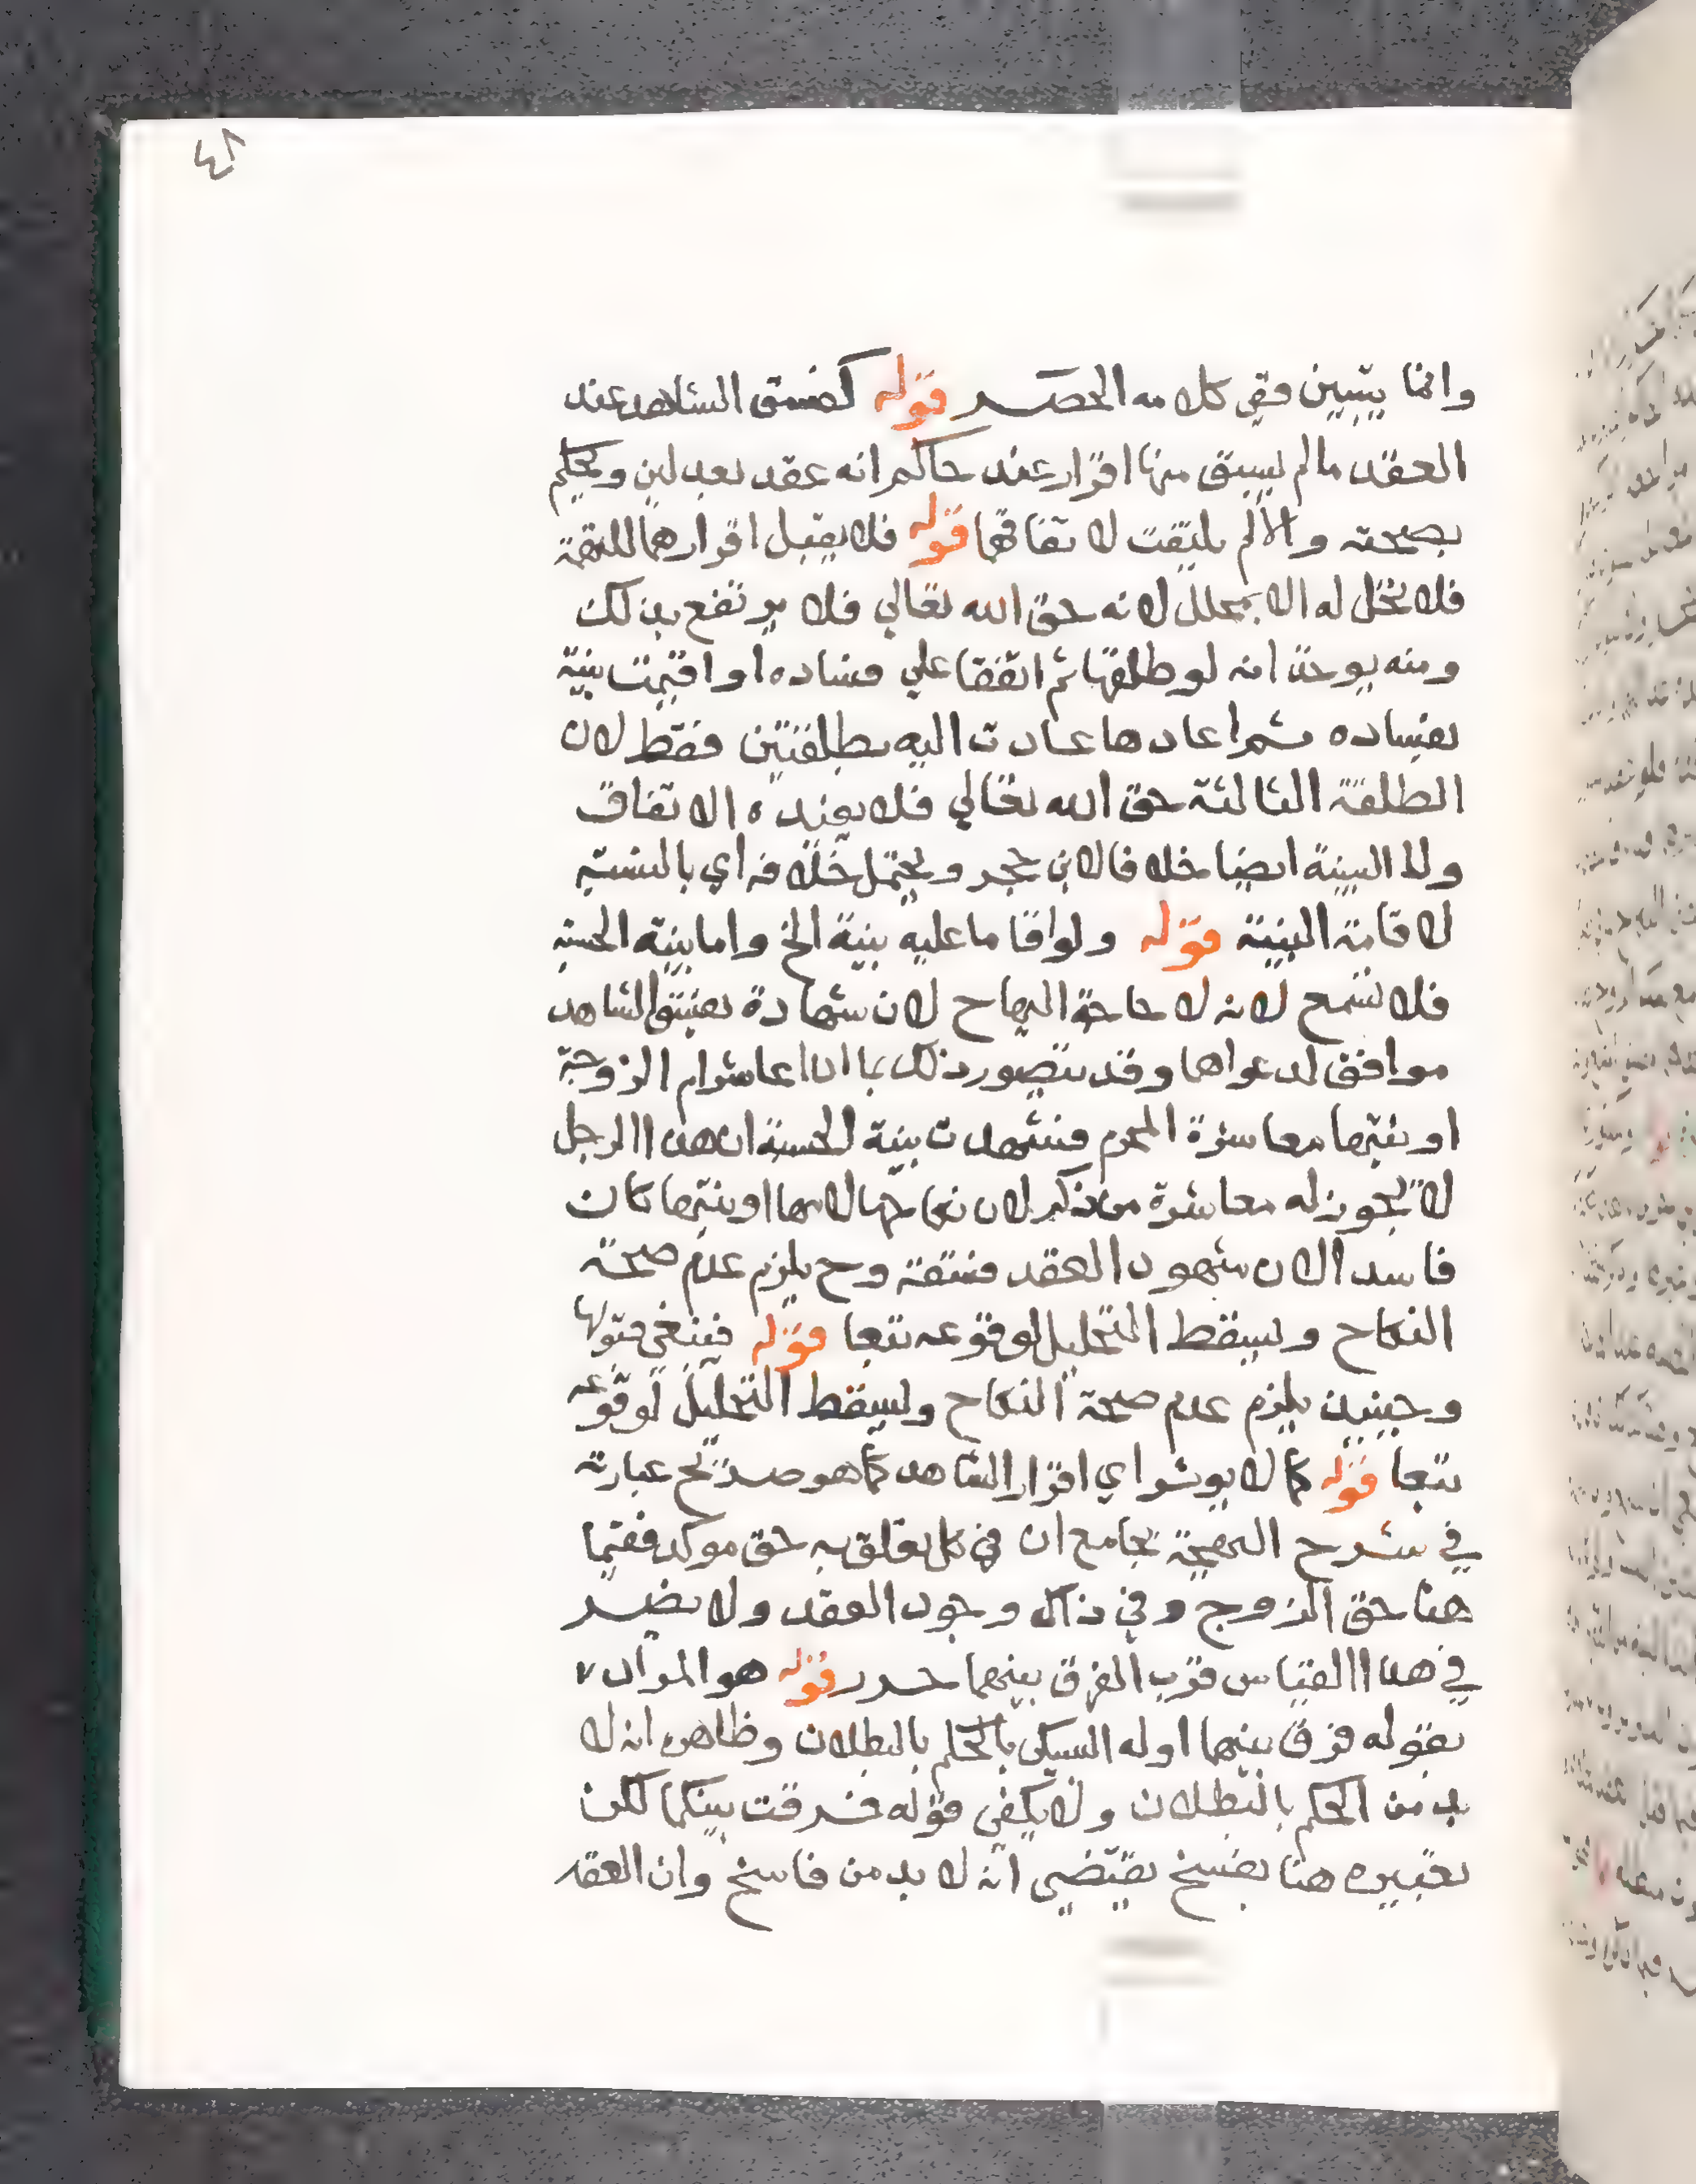 ٤٨
وانما يتبين ففي كلامه الحصر قوله كفسق الشاهد عند
العقد مالم يسبق منها اقرار عند حاكم انه عقد بعدلين ويحكم
بصحته والا لم يلتفت لاتفاقهما قوله فلا يقبل اقرارهما للتهمة
فلا تحل له الا بمحلل لانه حق الله تعالي فلا يرتفع بذلك
ومنه يوخذ انه لو طلقها ثم اتفقا علي فساده او اقيمت بينة
بفساده ثم اعادها عادت اليه بطلقتين فقط لان
الطلقة الثالثة حق الله تعالي فلا يفيده الاتفاق
ولا البينة ايضا خلافا لابن حجر ويحتمل خلافه اي بالنسبة
لاقامة البينة قوله ولو اقاما عليه بينة الخ واما بينة الحسبة
فلا تسمع لانه لا حاجة اليها ح لان شهادة بفسق الشاهد
موافق لدعواها وقد يتصور ذلك بما اذا عاشر ام الزوجة
او بنتها معاشرة المحرم فشهدت بينة الحسبة ان هذا الرجل
لا يجوز له معاشرة من ذكر لان نكاحها لامها او بنتها كان
فاسدا لان شهود العقد فسقة وح يلزم عدم صحة
النكاح ويسقط التحليل لوقوعه تبعا قوله فينبغي قبولها
وحينيذ يلزم عدم صحة النكاح ويسقط التحليل لوقوعه
تبعا قوله كما لا يوثر اي اقرار الشاهد كما هو صريح عبارته
في شرح البهجة بجامع ان في كل تعلق به حق موكد ففيما
هنا حق الزوج وفي ذاك وجود العقد ولا يضر
في هذا القياس قرب الفرق بينهما حرر قوله هو المراد
بقوله فرق بينهما اوله السبكي بالحكم بالبطلان وظاهره انه لا
بد من الحكم بالبطلان ولا يكفي قوله فرقت بينكما لكن
تعبيره هنا بفسخ يقتضي انه لا بد من فاسخ وان العقد